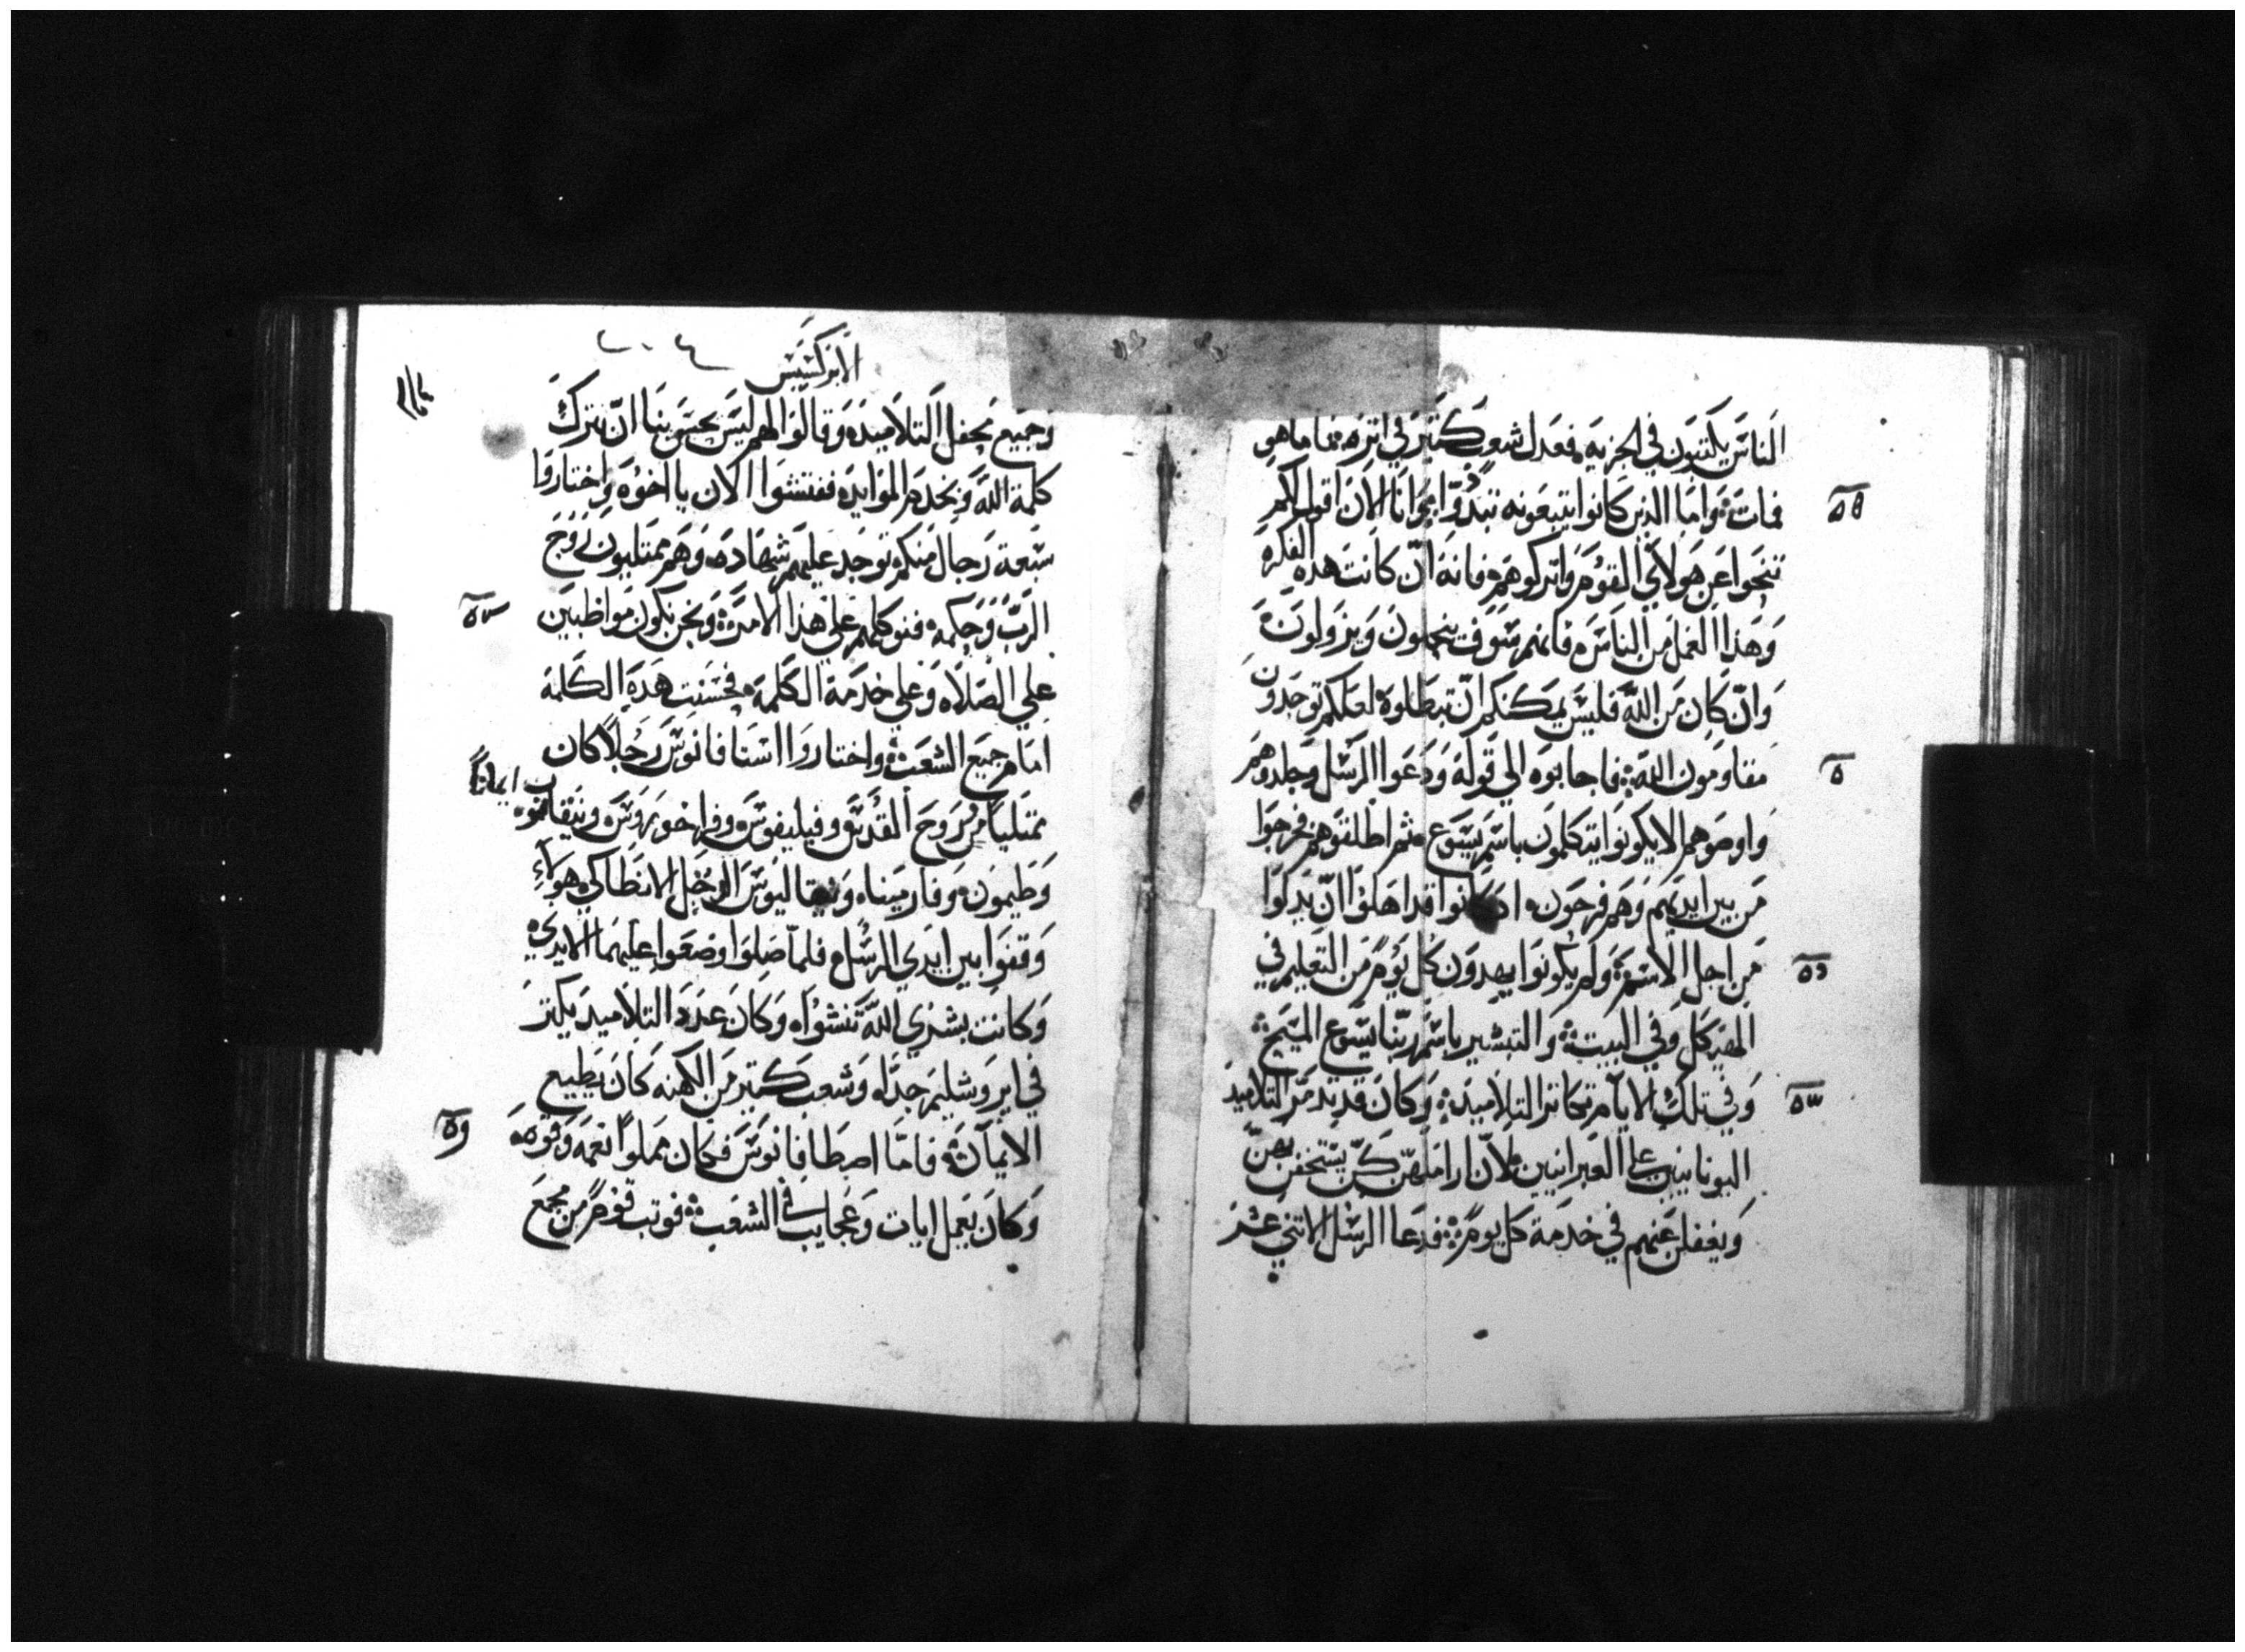 الناس يكتبون في الجزيه فعدل شعب كتير في اتره فاما هو
فمات واما الذين كانوا يتبعونه تبددوا وانا الان اقول لكم
تنحوا عن هولاي القوم واتركوهم فانه ان كانت هده الفكره
وهذا العمل من الناس فانهم سوف ينحلون ويزولون
وان كان من الله فليس يمكنكم ان تبطلوه لعلكم توجدون
مقاومون الله فاجابوه الي قوله ودعوا الرسل وجلدوهم
واوصوهم الا يكونوا يتكلمون باسم يسوع ثم اطلقوهم فخرجوا
من بين ايديهم وهم فرحون اد كانوا قد اهلوا ان يدلوا
من اجل الاسم ولم يكونوا يهدون كل يوم من التعليم في
الهيكل وفي البيت والتبشير باسم ربنا يسوع المسيح
وفي تلك الايام تكاتر التلاميد وكان قد تدمر التلاميد
اليونانيين علي العبرانيين لان اراملهن كن يستخفن بهن
ويغفلن عنهم في خدمة كل يوم فدعا الرسل الاتني عشر
الابركسيس
وجميع محفل التلاميد وقالوا لهم ليس يحسن بنا ان نترك
كلمة الله ونخدم الموايد ففتشوا الان يا اخوه واختاروا
سبعة رجال منكم توجد عليهم شهاده وهم ممتليون روح
الرب وحكمه فنوكلهم علي هذا الامر ونحن نكون مواظبين
علي الصلاه وعلي خدمة الكلمة فحسنت هده الكلمة
امام جميع الشعب واختاروا استافانوس رجلا كان
ايمانا
ممتليا من روح القدس وفيليفوس وفراخورس ونيقانور
وطيمون وفارميناه ونيقاليوس الرجل الانطاكي هولاء
وقفوا بين ايدي الرسل فلما صلوا وضعوا عليهما الايدي
وكانت بشري الله تنشوا وكان عدد التلاميد يكتر
في ايروشليم جدا وشعب كتير من الكهنه كان يطيع
الايمان فاما اصطافانوس فكان مملوا نعمه وقوه
وكان يعمل ايات وعجايب في الشعب فوتب قوم من مجمع